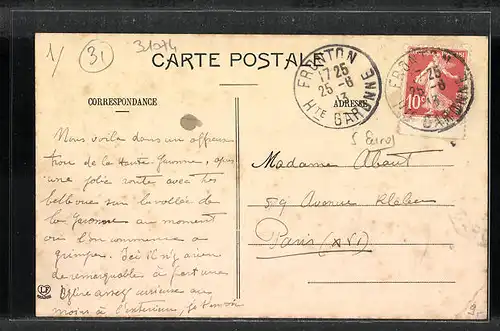 1/
31
31074
CARTE POSTALE
FRONTON
17 25
25 - 6
13
Hte GARONNE
FRONTON
25 - 6
13
10c
CORRESPONDANCE
ADRESSE
5 Euros
Nous voilà dans un affreux
trou de la Haute Garonne, après
une jolie route avec très
belle vue sur la vallée de
la Garonne au moment
où l'on commence à
grimper. Ici il n'y a rien
de remarquable à part une
Eglise assez curieuse au
moins à l'intérieur, je t'envoie
Madame
59 Avenue Kléber
Paris (XVI)